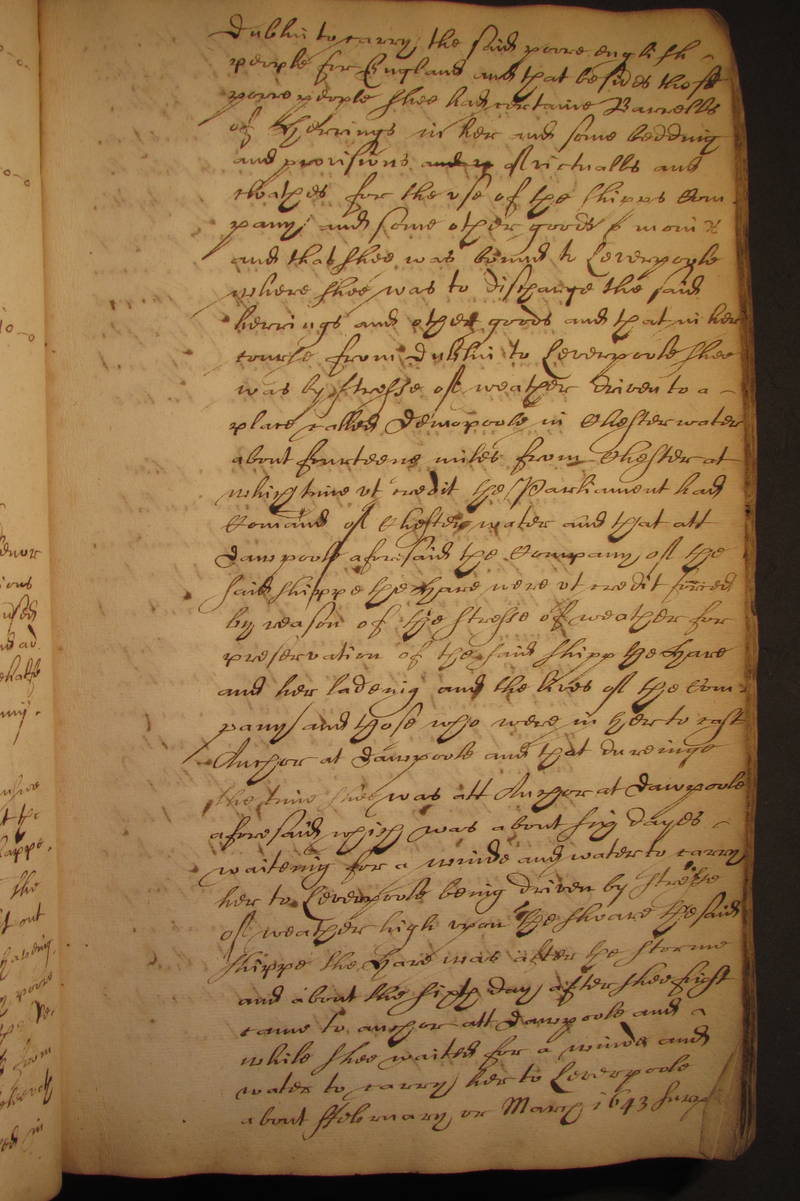 Dublin to carry the said poore english
people for England and that besides those
poore people shee had certaine Barrells
of Herrings in her and some bedding
and provisions and of victualls and
cloathes for the use of the shipps Com
pany and some other goods
and that shee was bound to Leverpoole
where shee was to discharge the said
herrings and other goods and that in her
course from Dublin to Leverpoole shee
was by stresse of weather driven to a
place called Dawpoole in Chester water
about fourteene miles from Chester at
which time ut credit the Parliament had
Comand of Chester water and that att
Dawpoole aforesaid the Company of the
said shippe the Hare were ut credit forced
by reason of the stresse of weather for
preservation of the said shipp the Hare
and her ladeing and the lives of the Com
pany and those who were in her to cast
Anchor at Dawpoole and that dureinge
the time shee was att Anchor at Dawpoole
aforesaid which was about six dayes
waiteing for a winde and water to carry
her to Leverpoole being driven by stresse
of weather high upon the shoare the said
shippe the Hare was after the storme
and about the sixth day after shee first
came to anchor att Dawpoole and
while shee waited for a winde and
water to carry her to Leverpoole
about ffebruary or March 1643